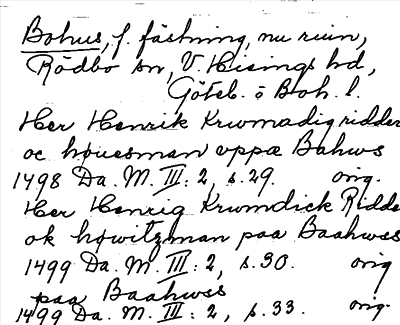 Bohus, f. fästning, nu ruin,
Rödbo sn, V. Hisings hd,
Göteb. o Boh. l.
Her Henrik Krwmadig ridder
oc houesman vppæ Bahws
1498 Da. M. III: 2, s. 29. orig.
Her Henrig Krwmdick Ridde
ok howitzman paa Baahwss
1499 Da. M. III: 2, s. 30. orig
paa Baahwss
1499 Da. M. III: 2, s. 33. orig.